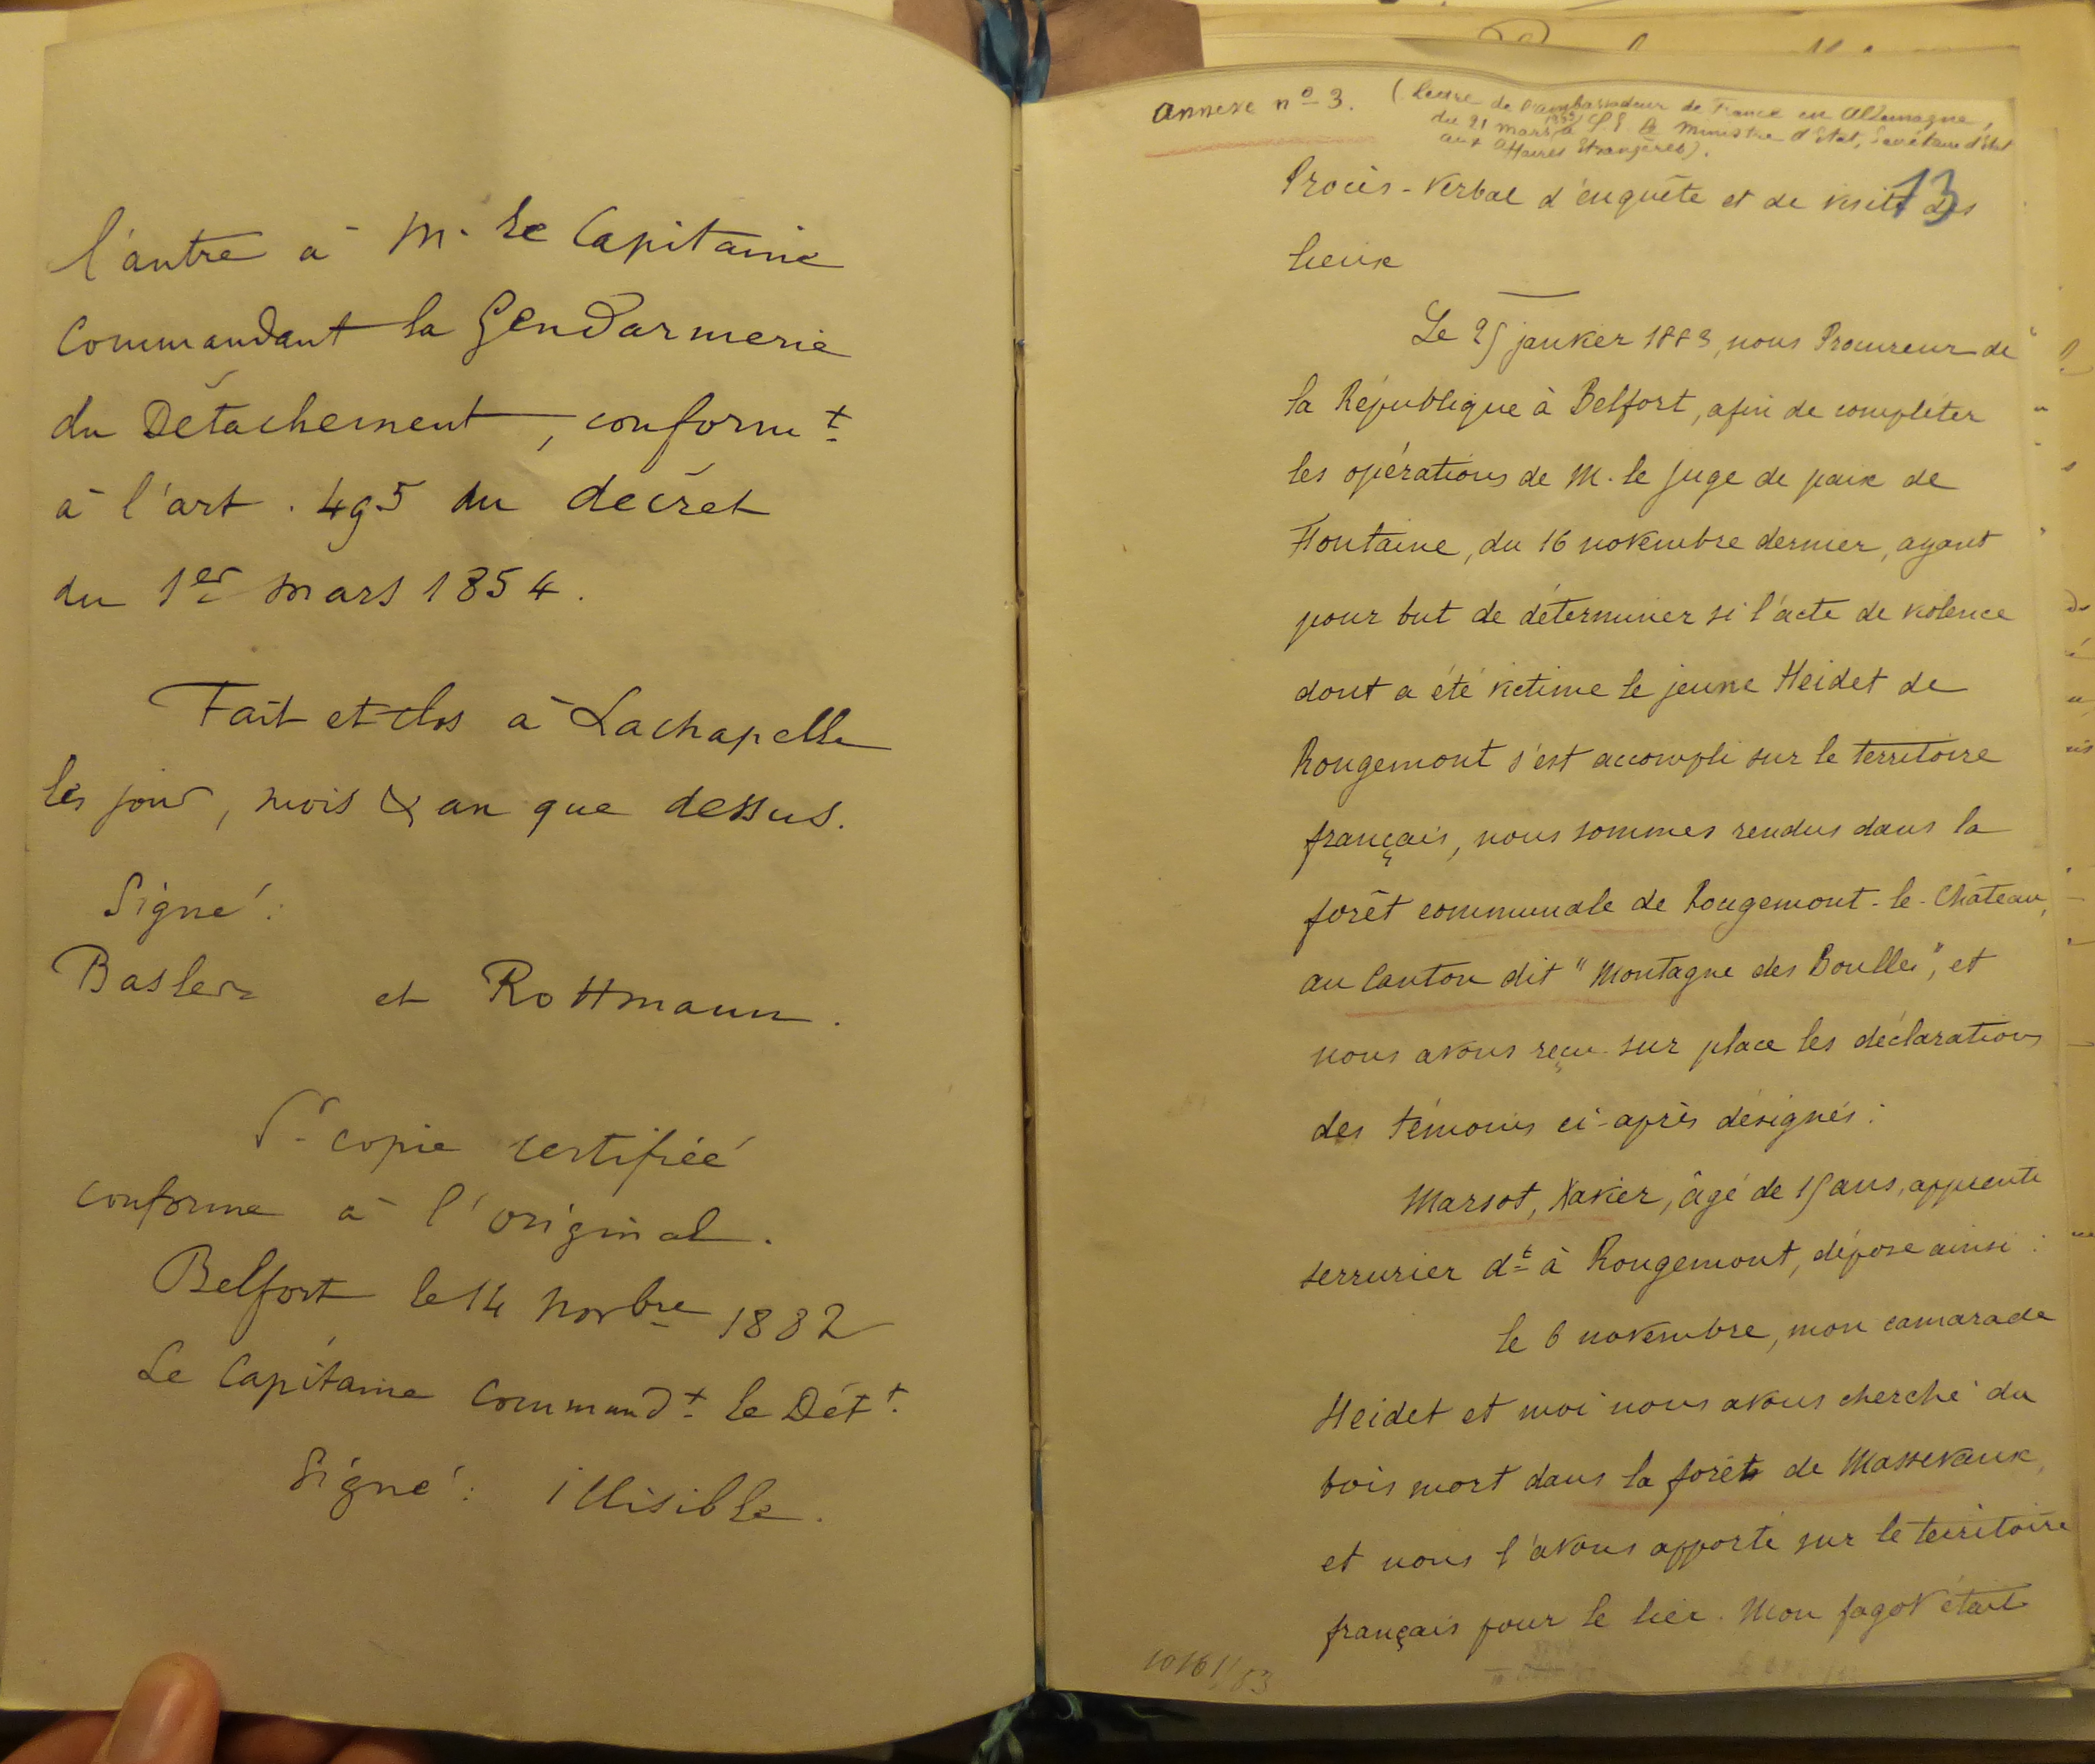 l'autre à M. le Capitaine
Commandant la Gendarmerie
du Détachement, conformt
à l'art. 495 du décret
du 1er mars 1854.
Fait et clos à Lachapelle
les jour, mois & an que dessus.
Signé:
Basler et Rottmann.
Pr copie certifiée
conforme à l'original.
Belfort le 14 Novbre 1882
Le Capitaine Commandt le Dét t.
Signé: illisible.
Annexe no 3. (Lettre de l'ambassadeur de France en Allemagne,
du 21 mars 1883 à S. E. le Ministre d'Etat, Secrétaire d'Etat
aux Affaires Etrangères).
13
Procès-Verbal d'enquête et de visite des
lieux
Le 25 janvier 1883, nous Procureur de
la République à Belfort, afin de compléter
les opérations de M. le juge de paix de
Fontaine, du 16 novembre dernier, ayant
pour but de déterminer si l'acte de violence
dont a été victime le jeune Heidet de
Rougemont s'est accompli sur le territoire
français, nous sommes rendus dans la
forêt communale de Rougemont-le-Château,
au Canton dit "Montagne des Boulles", et
nous avons reçu sur place les déclarations
des témoins ci-après désignés:
Marsot, Xavier, âgé de 15 ans, apprenti
serrurier dt à Rougemont, dépose ainsi:
le 6 novembre, mon camarade
Heidet et moi nous avons cherché du
bois mort dans la forêt de Massevaux,
et nous l'avons apporté sur le territoire
français pour le lier. Mon fagot était